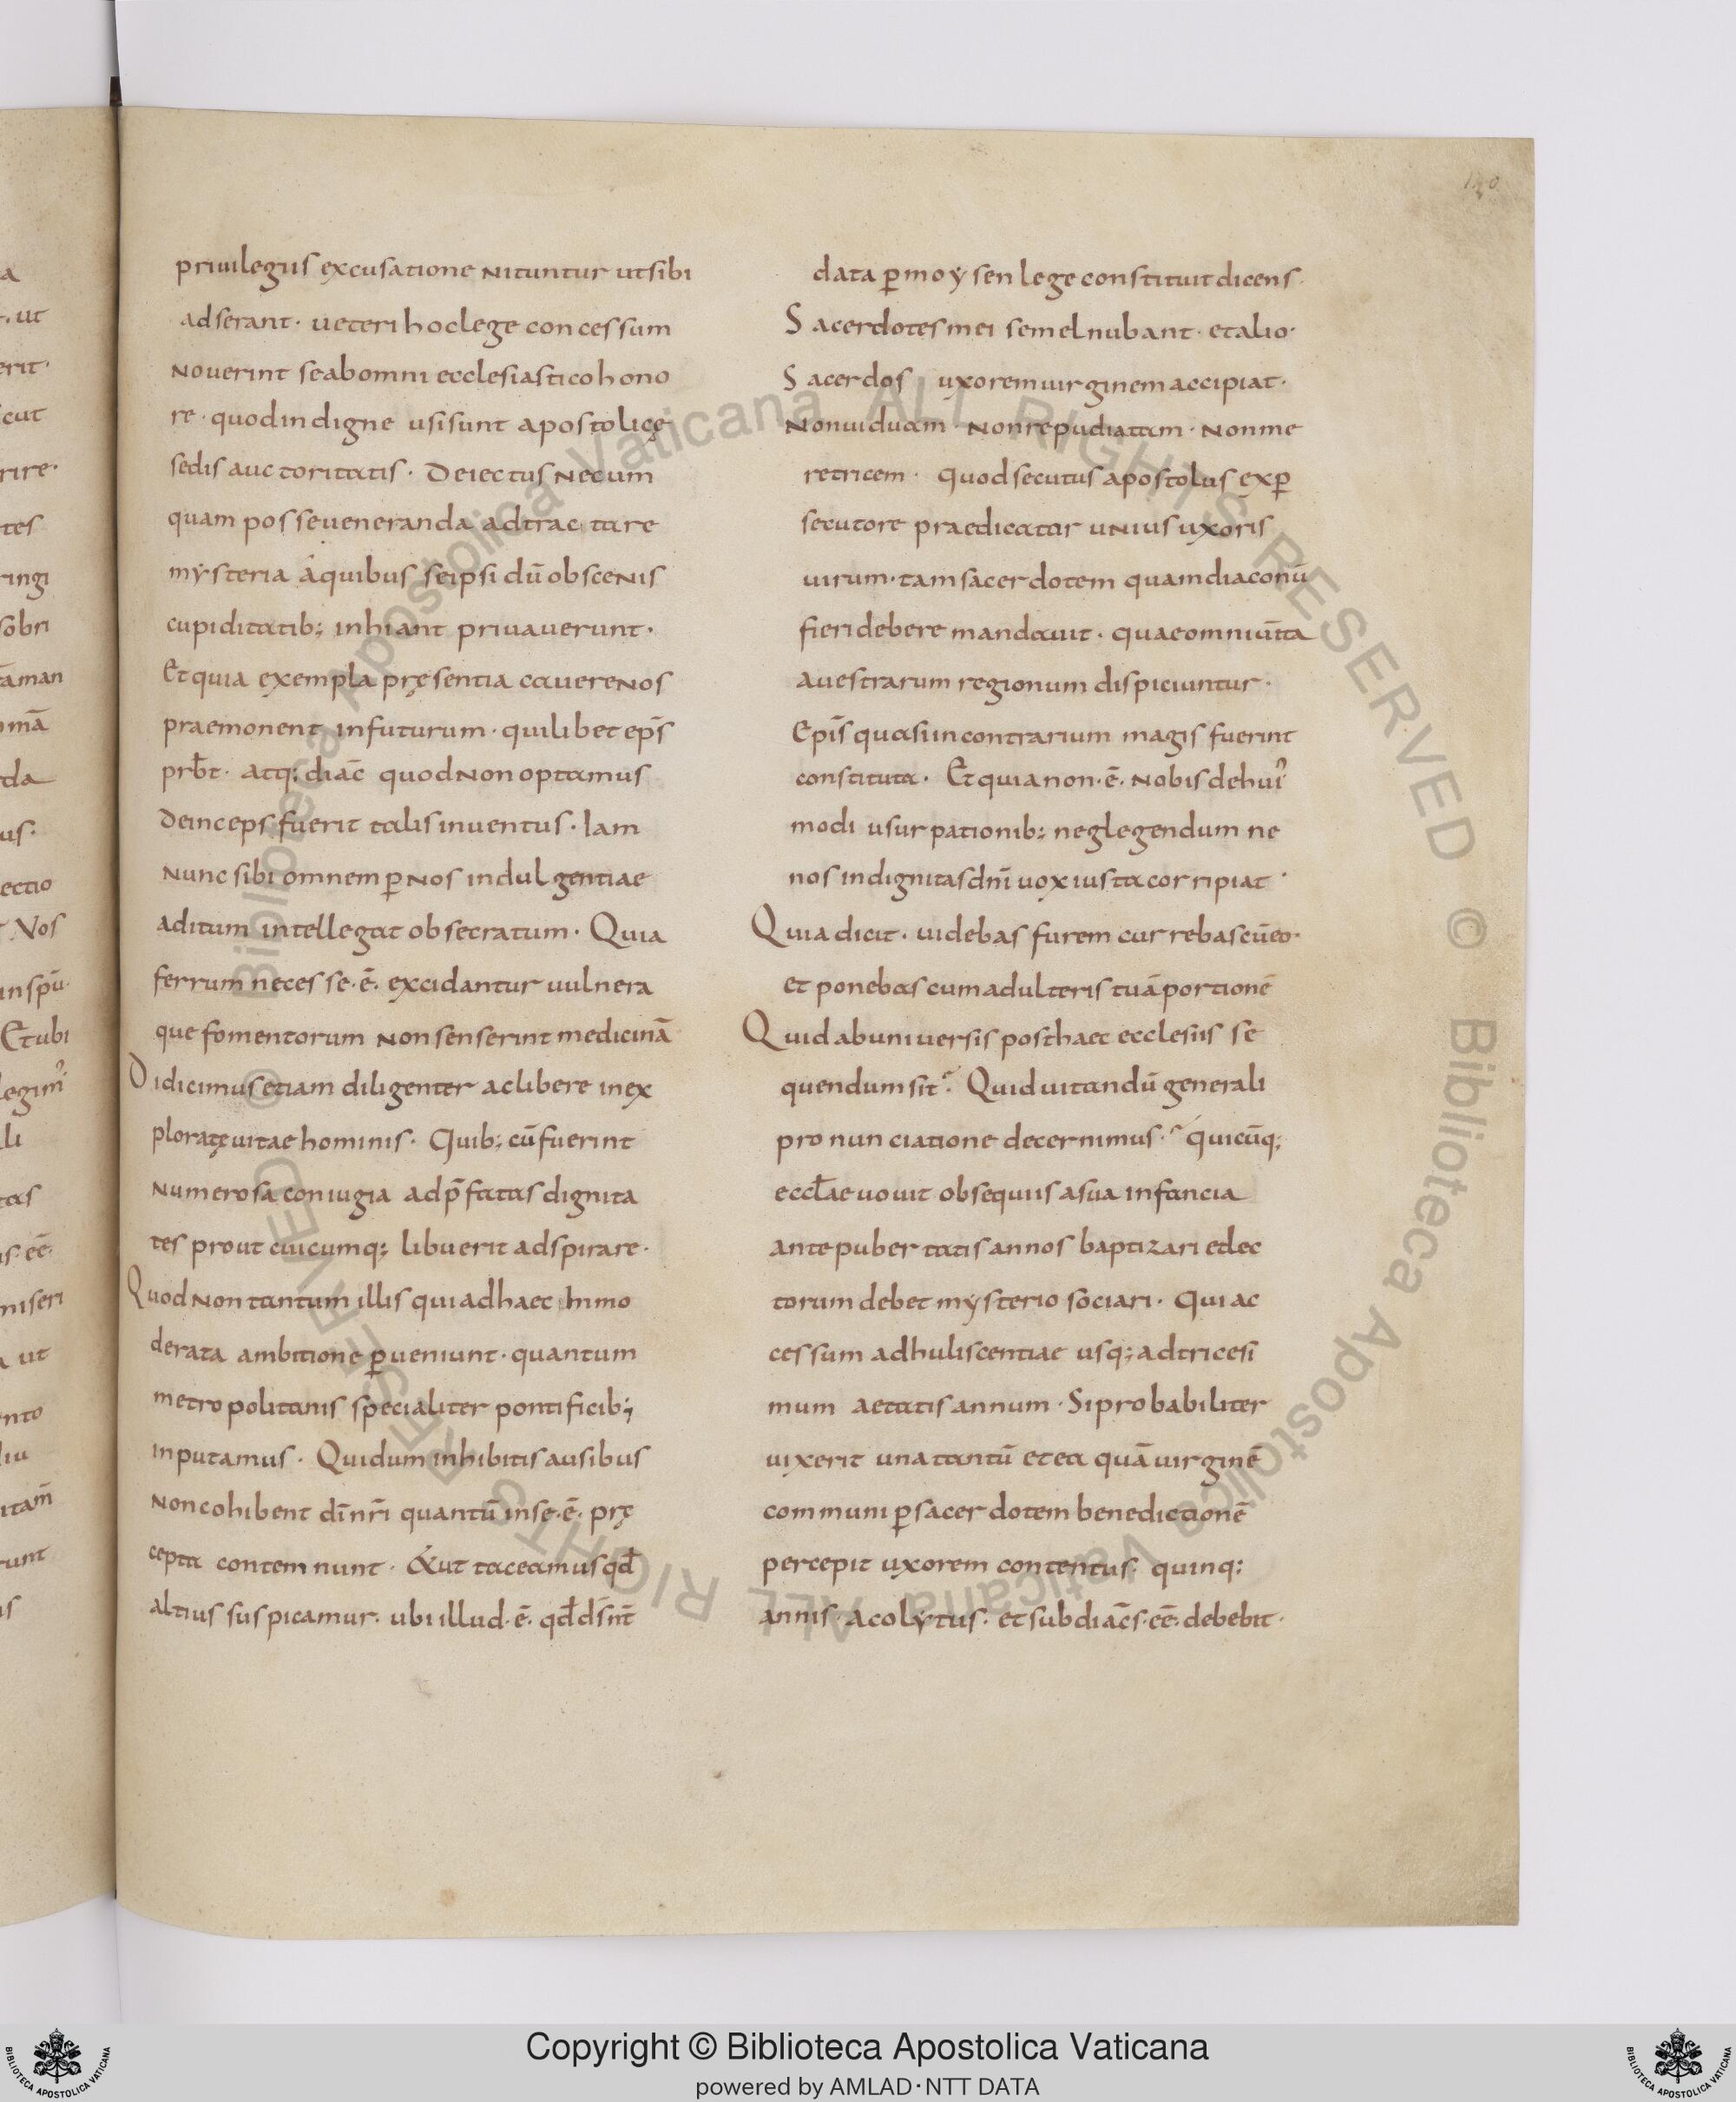 140
priuilegiis excusatione nituntur ut sibi
adserant · ueteri hoc lege concessum
nouerint se ab omni ecclesiastico hono
re · quod indigne usi sunt apostolicę
sedis auctoritatis · Deiectus nec um
quam posse ueneranda adtractare
mẏsteria a quibus se ipsi dū obscenis
cupiditatib; inhiant priuauerunt ·
Et quia exempla pręsentia cauere nos
praemonent in futurum · quilibet ep̄s
prb̄t · atq; diac̄ quod non optamus
deinceps fuerit talis inuentus · Iam
nunc sibi omnem ꝑ nos indulgentiae
aditum intellegat obsecratum · Quia
ferrum necesse · ē · excidantur uulnera
que fomentorum non senserint medicinā
Didicimus etiam diligenter ac libere inex
ploratę uitae hominis · Quib; cū fuerint
numerosa coniugia ad p̄fatas dignita
tes prout cuicumq; libuerit adspirare ·
Quod non tantum illis qui ad haec inmo
derata ambitione ꝑueniunt · quantum
metropolitanis specialiter pontificib;
inputamus · Qui dum inhibitis ausibus
non cohibent dī nr̄i quantū in se · ē · prę
cepta contemnunt · & ut taceamus qd̄
altius suspicamur · ubi illud · ē · qd̄ ds̄ nt̄
data ꝑ moẏsen lege constituit dicens ·
Sacerdotes mei semel nubant · et alio ·
Sacerdos uxorem uirginem accipiat ·
Non uiduam · non repudiatam · non me
retricem · Quod secutus apostolus ex ꝑ
secutore praedicatar unius uxoris
uirum · tam sacerdotem quam diaconū
fieri debere mandauit · quae omni ūita
a uestrarum regionum dispiciuntur ·
Epīs quasi in contrarium magis fuerint
constituta · Et quia non · ē · nobis de hui᾽
modi usurpationib; neglegendum ne
nos indignitas dn̄i uox iusta corripiat ·
Quia dicit · uidebas furem currebas cū eo ·
et ponebas cum adulteris tuā portionē
Quid ab uniuersis post haec ecclesiis se
quendum sit · Quid uitandū generali
pronunciatione decernimus · quicūq;
eccl̄ae uouit obsequiis a sua infancia
ante pubertatis annos baptizari et lec
torum debet mẏsterio sociari · Qui ac
cessum adhuliscentiae usq; ad tricesi
mum aetatis annum · Si probabiliter
uixerit una tantū et ea quā uirginē
communi ꝑ sacerdotem benedictionē
percepit uxorem contentus · quinq;
annis · Acolẏtus · et subdiac̄s · eē · debebit ·
a
· ut
erit ·
cut
rire ·
tes
ringi
sobri
āman
mā
da
us ·
ectio
Nos
in spū
Et ubi
legim᾽
li
tas
s · eē ·
miseri
ut
nto
liu
itam̄
runt
is
© Biblioteca Apostolica Vaticana ALL RIGHTS RESERVED © Biblioteca Apostolica Vaticana ALL RIGHTS RESERVED
Copyright © Biblioteca Apostolica Vaticana
powered by AMLAD·NTT DATA
BIBLIOTECA APOSTOLICA VATICANA
BIBLIOTECA APOSTOLICA VATICANA